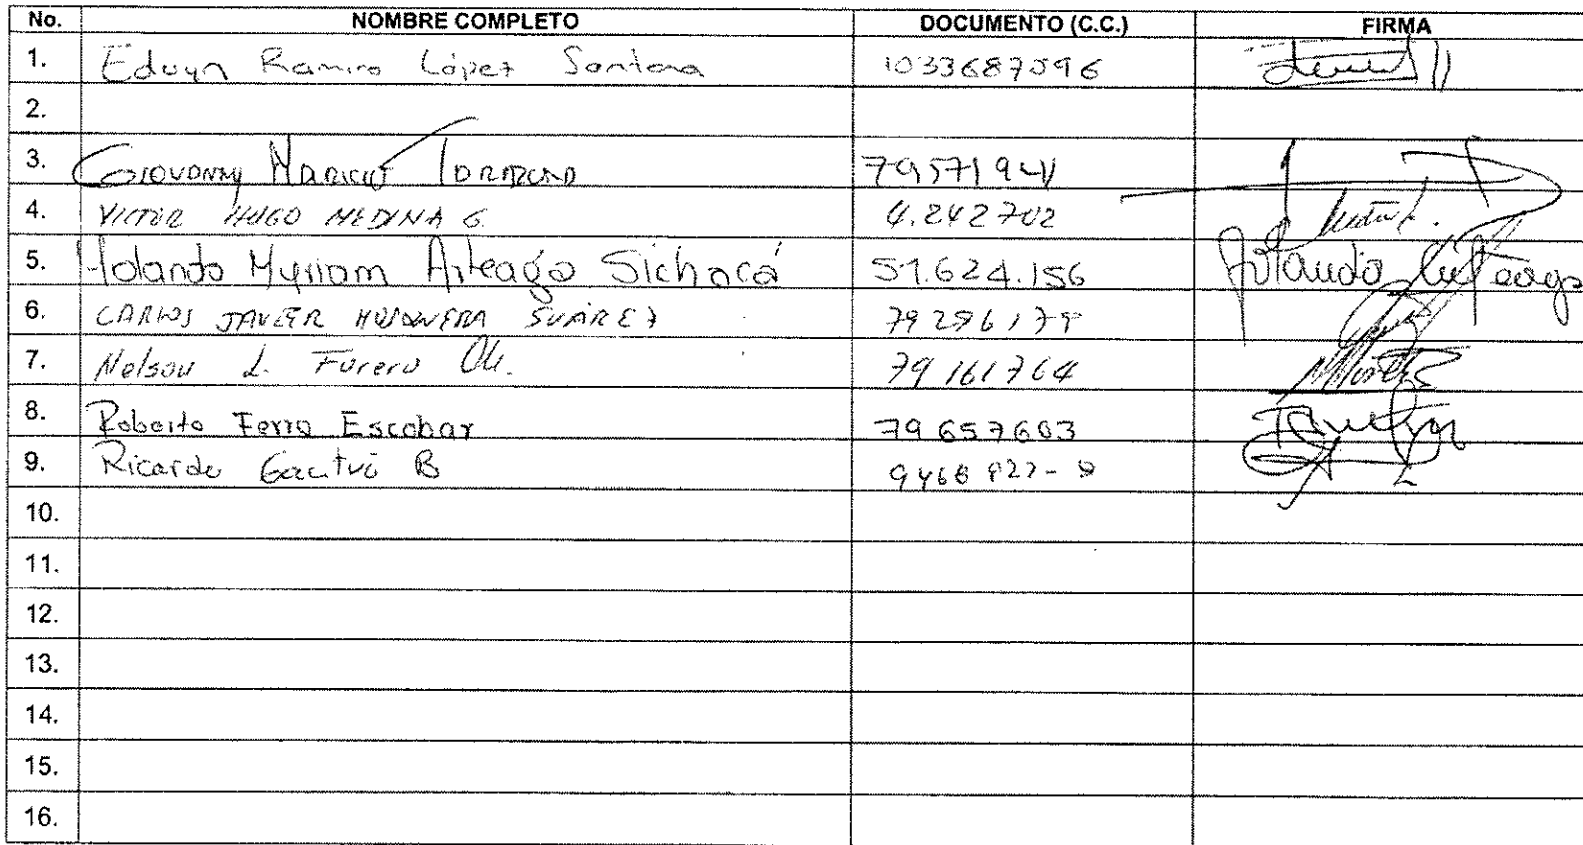 No. NOMBRE COMPLETO DOCUMENTO (C.C.) FIRMA
1. Eduyn Ramiro López Santana 1033687096
2.
3. GIOVANNY MAURICIO 79571941
4. VICTOR HUGO MEDINA G. 4.242702
5. Yolanda Myriam Arteaga Sichacá 51.624.156 Yolanda Arteaga
6. CARLOS JAVIER MOSQUERA SUÁREZ
7. Nelson L. Forero 79161764
8. Roberto Ferro Escobar 79657603
9. Ricardo B
10.
11.
12.
13.
14.
15.
16.